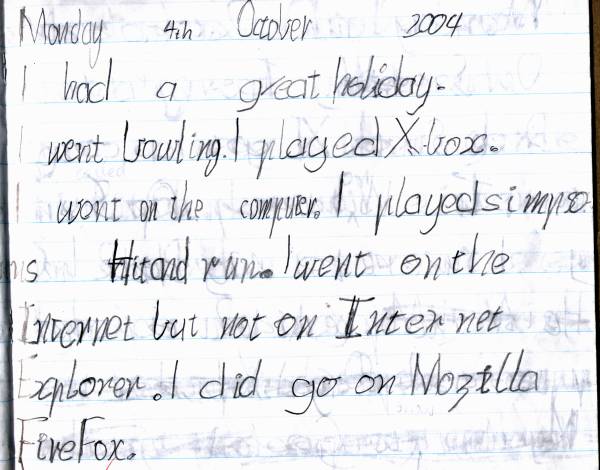 Monday 4th October 2004
I had a great holiday.
I went bowling. I played X-box.
I wont on the computer. I played simpso
ns Hit and run. I went on the
Internet but not on Internet
Explorer. I did go on Mozilla
FireFox.